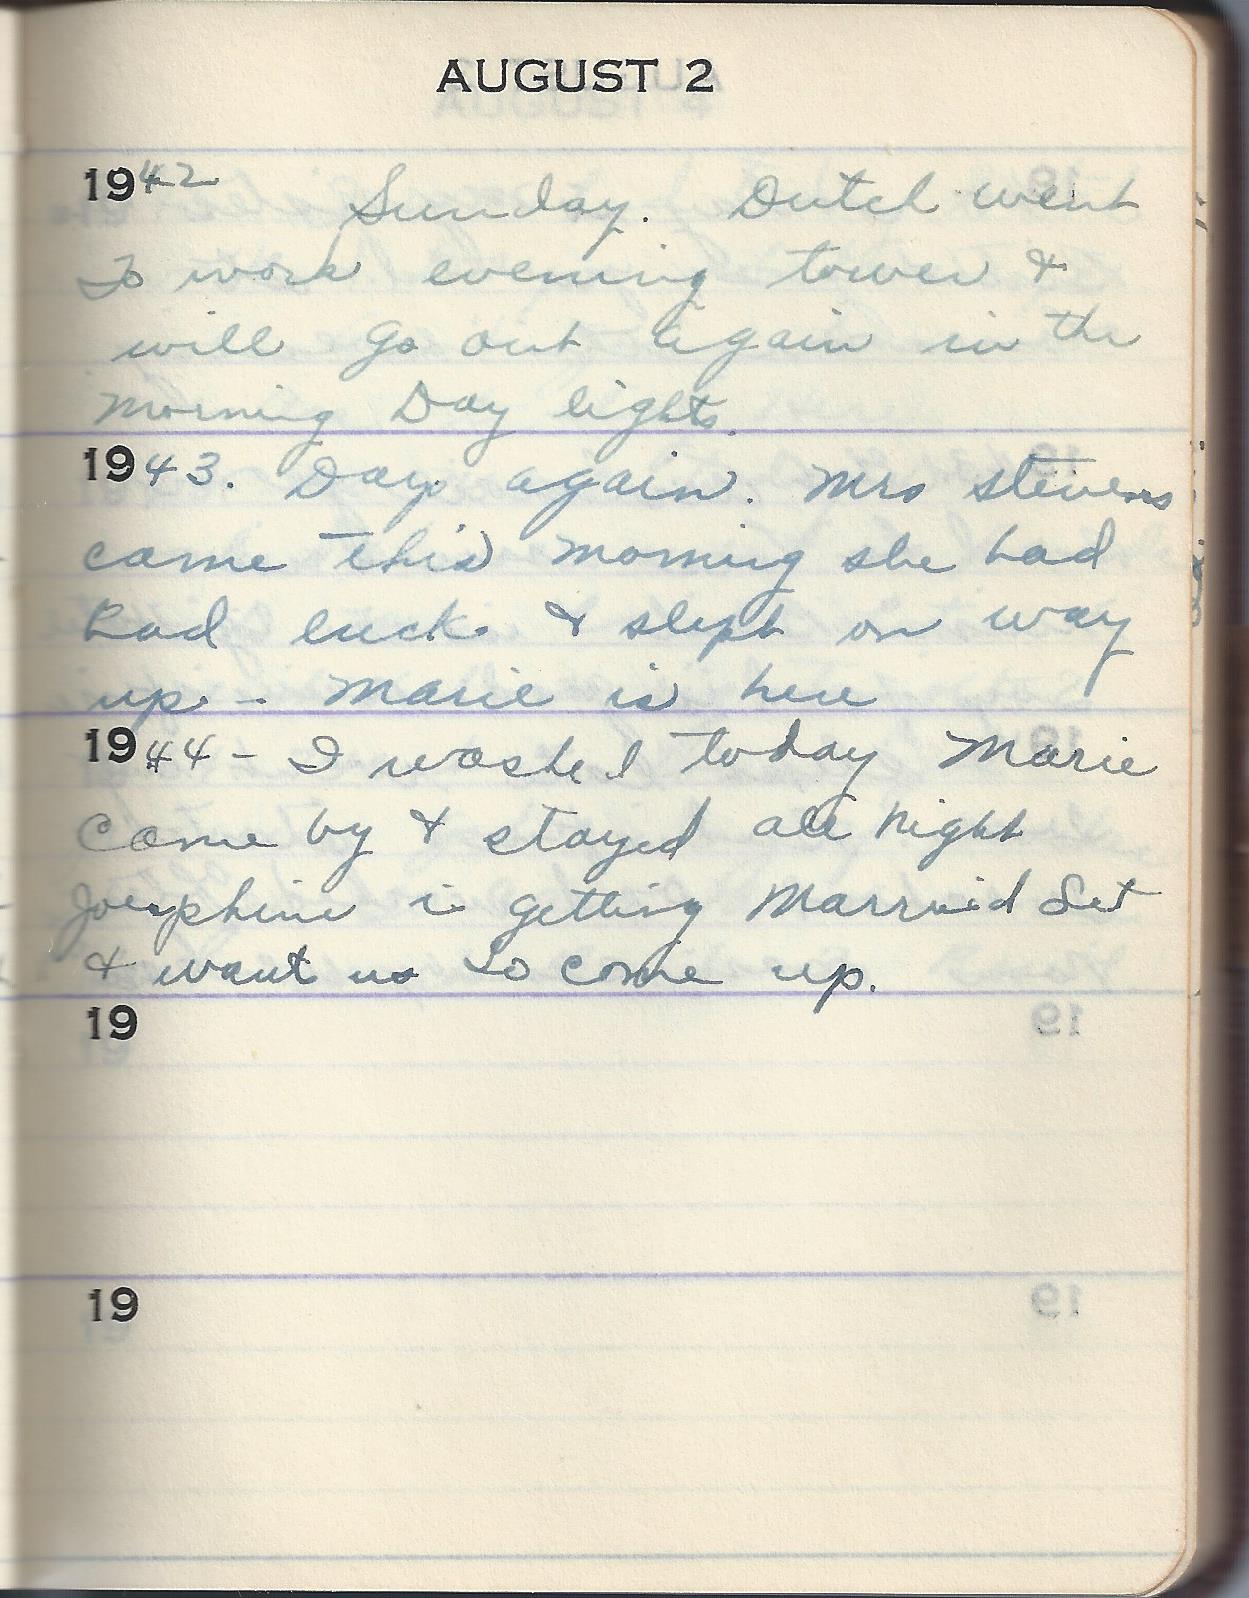 AUGUST 2
1942 Sunday. Dutch went
to work evening tower &
will go out again in the
morning Day lights.
1943. Day again. Mrs Stevens
came this morning she had
bad luck & slept on way
up - Marie is here
1944 - I washed today Marie
come by & stayed all night
Joesphine is getting Married Sat
& want us to come up.
19
19